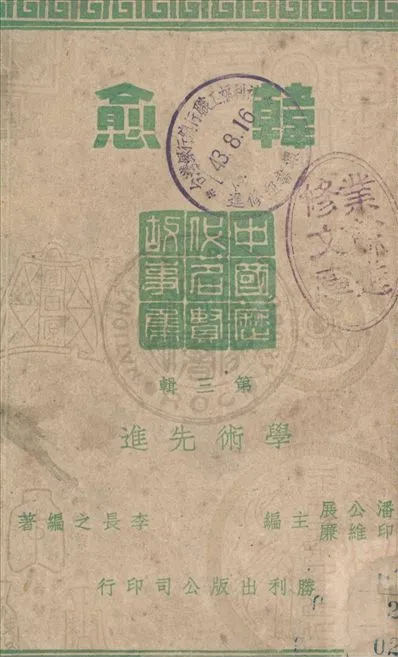 韓愈
43.8.16
中國歷代名賢故事集
第三輯
學術先進
潘公展
印維廉
主編
李長之編著
勝利出版公司印行
NATIONAL
02